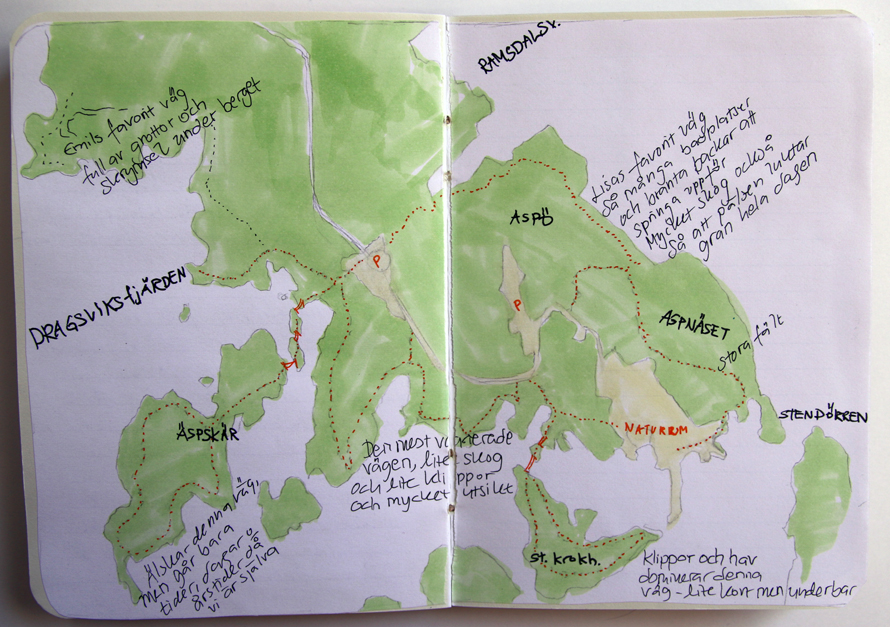 Emils favorit väg
full av grottor och
skrymslen under berget
DRAGSVIKSFJÄRDEN
ÄSPSKÄR
Älskar denna väg,
men går bara
tider, dagar o
årstider då
vi är själva
P
Den mest varierade
vägen, lite skog
och lite klippor
och mycket utsikt
RAMSDALSV.
Lisas favorit väg
så många badplatser
och branta backar att
springa uppför
Mycket skog också
så att pälsen luktar
gran hela dagen
ASPÖ
P
ASPNÄSET
stora fält
STENDÖRREN
NATURUM
St. KROKH.
Klippor och hav
dominerar denna
väg - lite kort men underbar